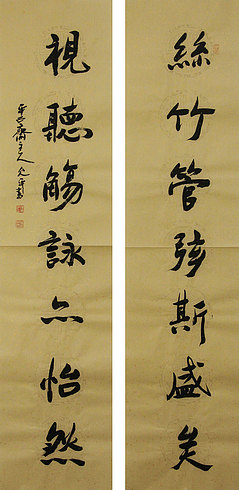 絲竹管弦斯盛矣
視聽觴詠亦怡然